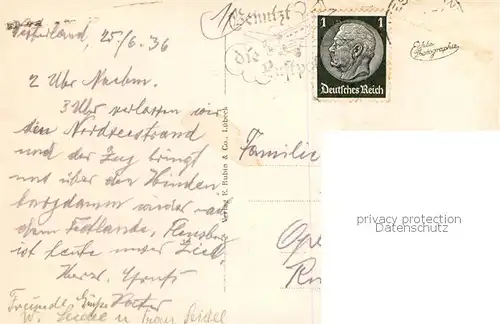 Westerland, 25/6. 36
2 Uhr Nachm.
3 Uhr verlassen wir
den Nordseestrand
und der Zug bringt
uns über den Hinden
burgdamm wieder nach
dem Festlande, Flensburg
ist heute unser Ziel.
Herzl.
Freunde
W. Seidel u. Frau Seidel
Verlag E. Rubin & Co., Lübeck
Benutzt
die
Luftpo
1 1
Deutsches Reich
Echte
Photographie
Familie
privacy protection
Datenschutz